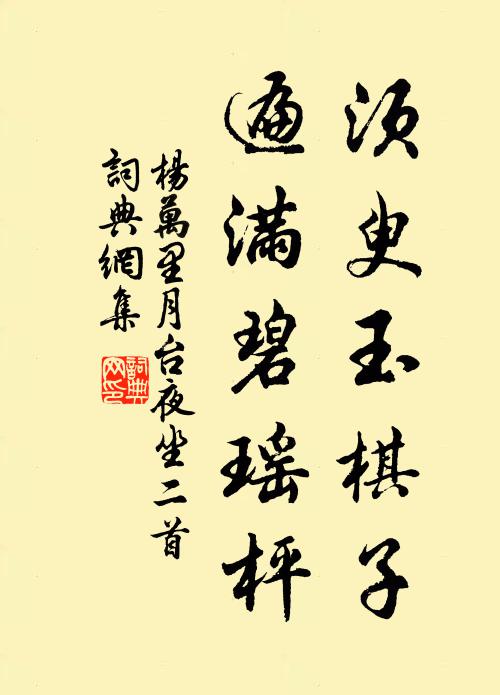 須臾玉棋子
遍滿碧瑤枰
楊萬里月台夜坐二首
詞典網集
詞典網印